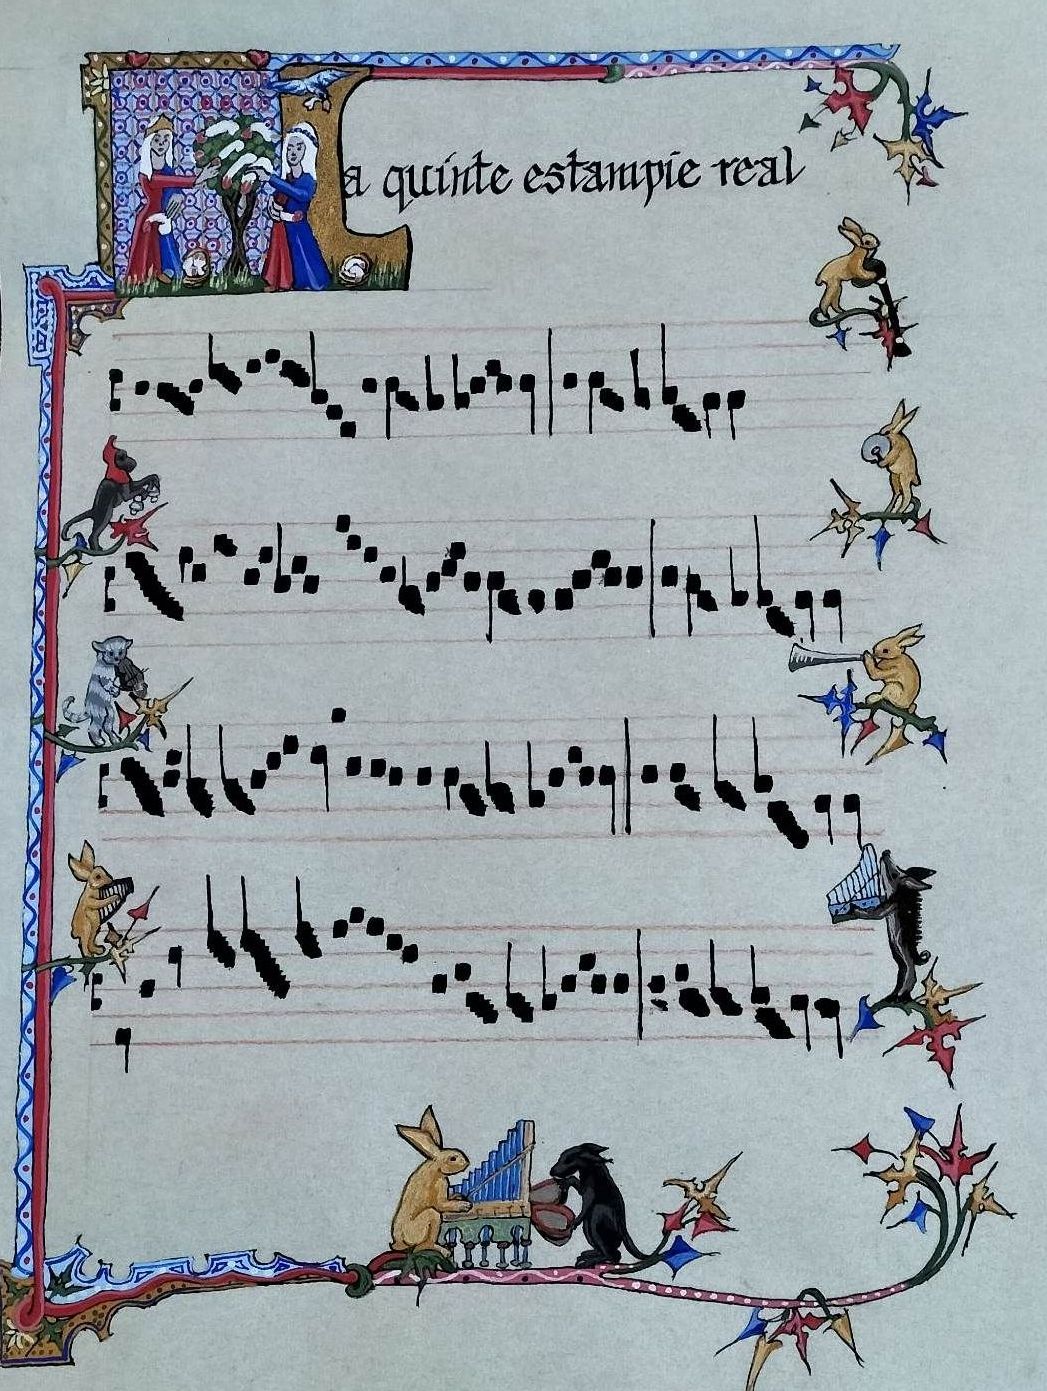 La quinte estampie real